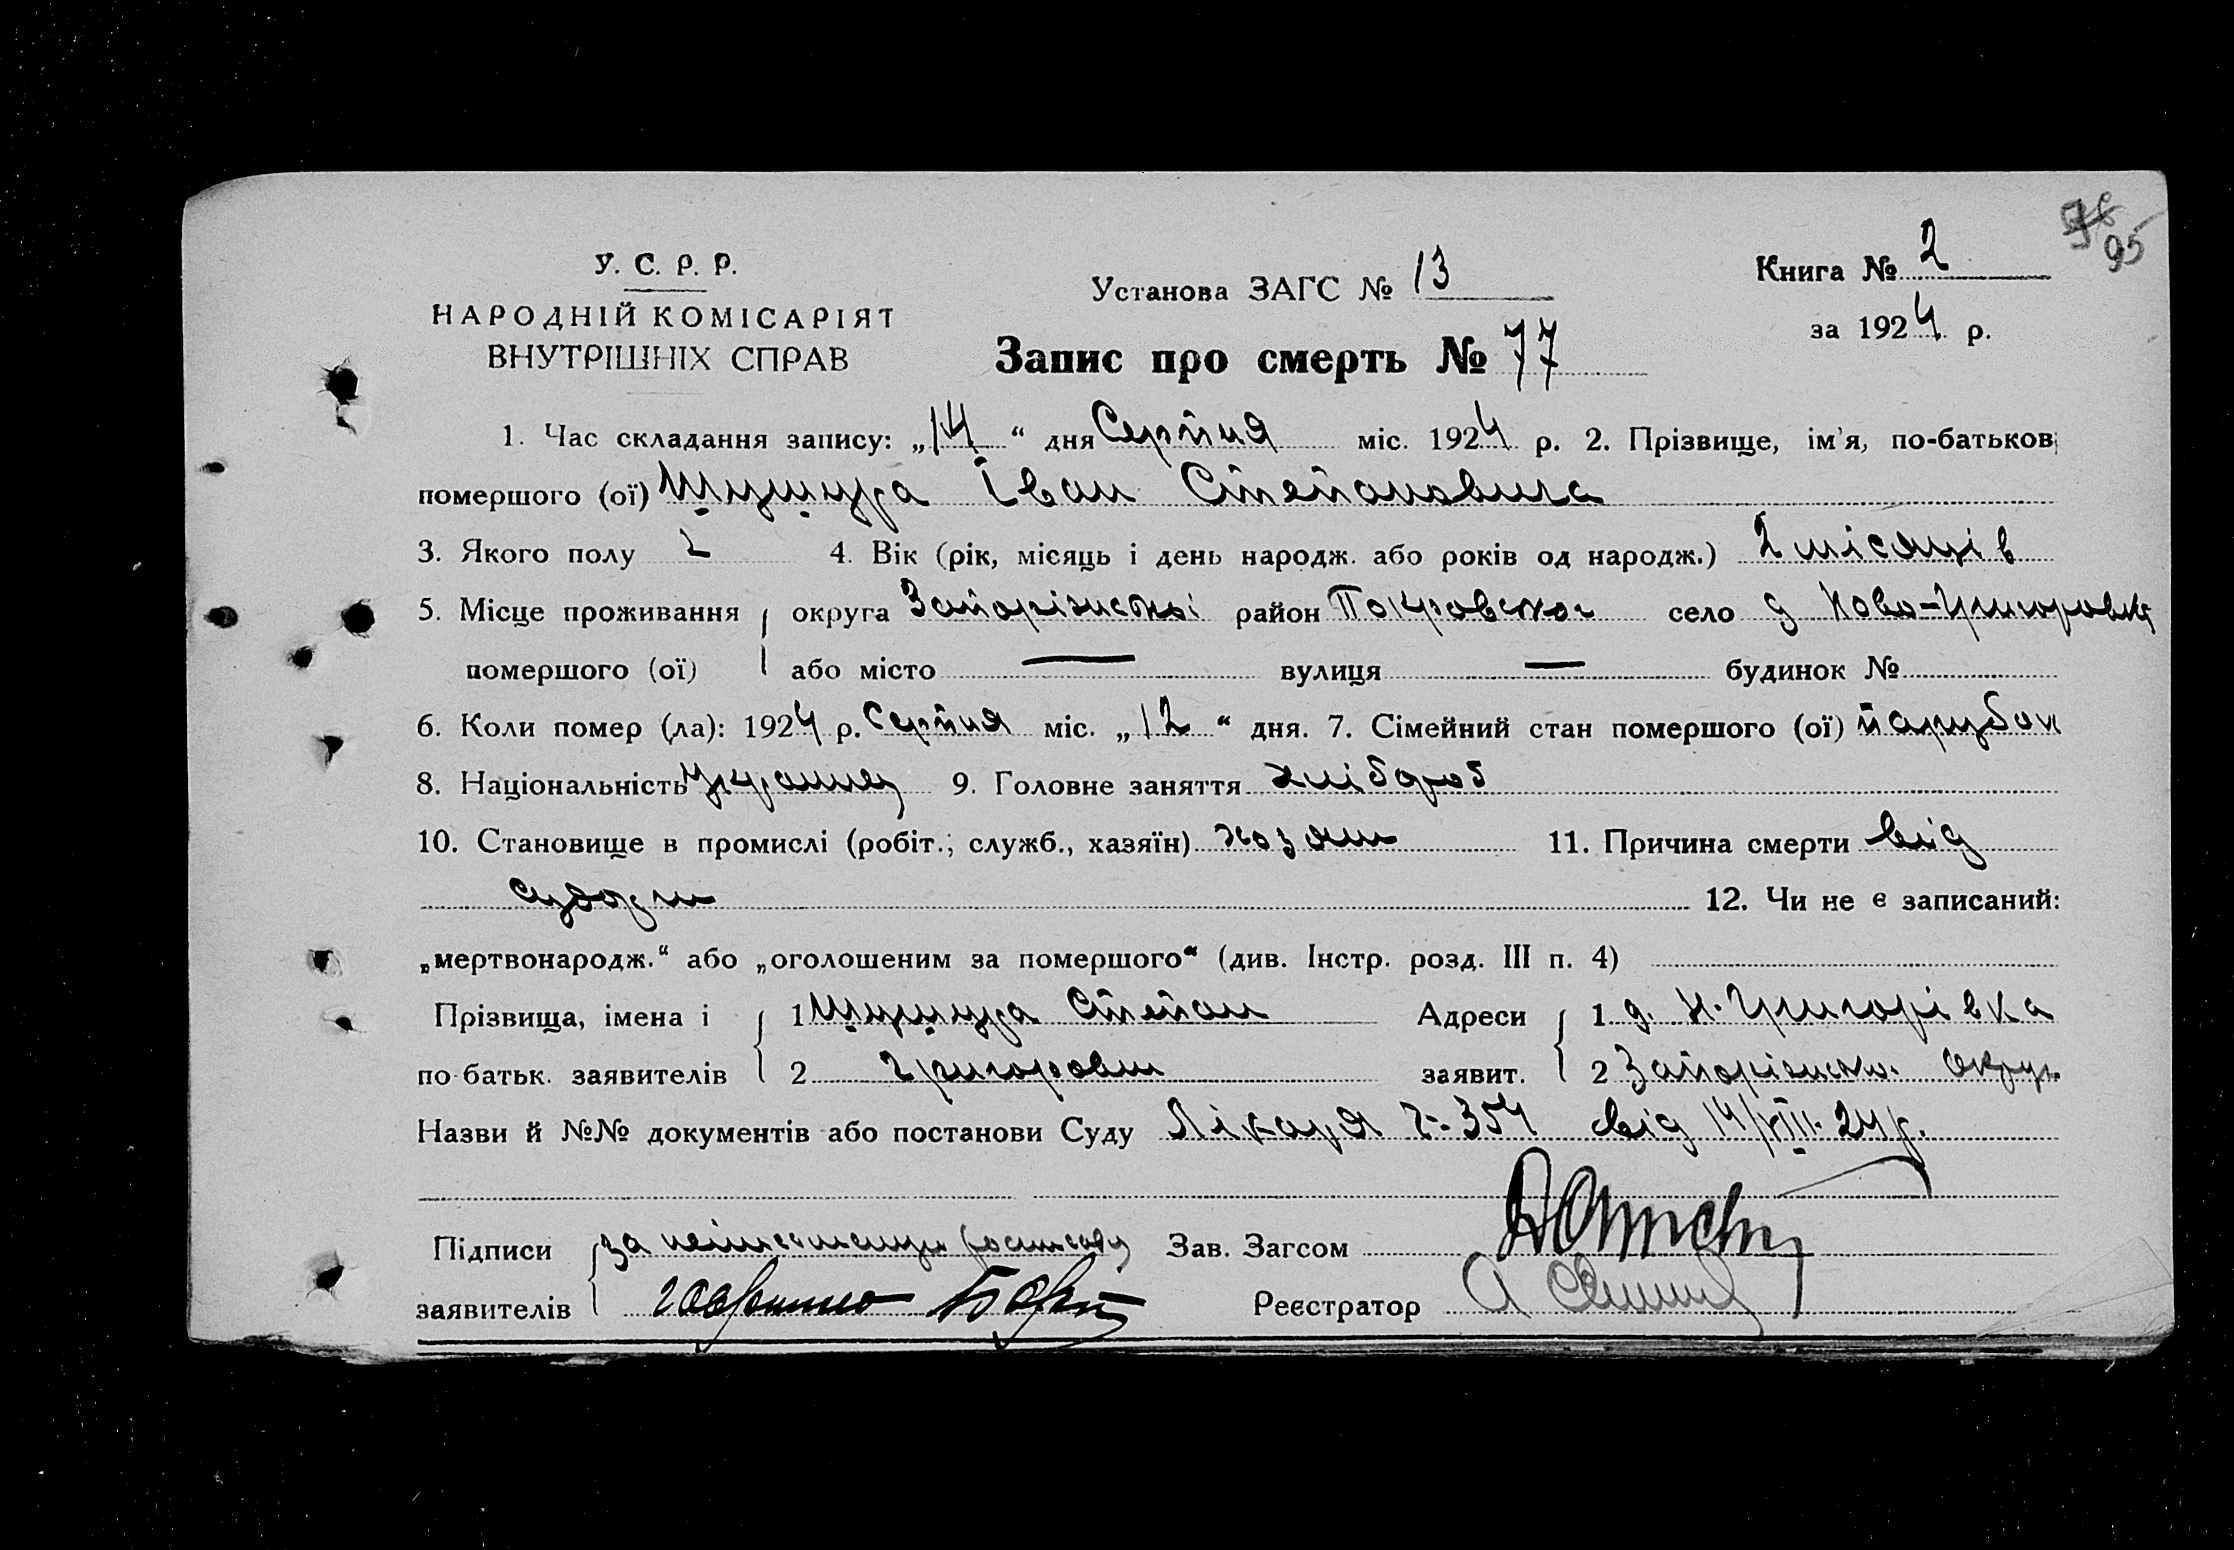 95
У. С. Р. Р.
НАРОДНІЙ КОМІСАРІЯТ
ВНУТРІШНІХ СПРАВ
Установа ЗАГС № 13
Книга № 2
за 1924 р.
Запис про смерть № 77
1. Час складання запису: „14“ дня Серпня міс. 1924 р. 2. Прізвище, ім'я, по-батькові
помершого (ої) Шушура Іван Степановича
3. Якого полу 4. Вік (рік, місяць і день народж. або років од народж.) 2 місяців
5. Місце проживання округа Запоріжської район Покровського село д Ново-Григоровка
помершого (ої) або місто — вулиця — будинок №
6. Коли помер (ла): 1924 р. Серпня міс. „12“ дня. 7. Сімейний стан помершого (ої) парубок
8. Національність Украинец 9. Головне заняття хлібороб
10. Становище в промислі (робіт.; служб., хазяїн) хозяин 11. Причина смерти від
12. Чи не є записаний:
„мертвонародж.“ або „оголошеним за помершого“ (див. Інстр. розд. III п. 4)
Прізвища, імена і 1 Шушура Степан Адреси 1 д. Н. Григорівка
по батьк. заявителів 2 Григорович заявит. 2 Запоріжськ. округ.
Назви й №№ документів або постанови Суду Лікаря ч. 354 від 14/VIII. 24 р.
Підписи за Зав. Загсом
заявителів Реєстратор